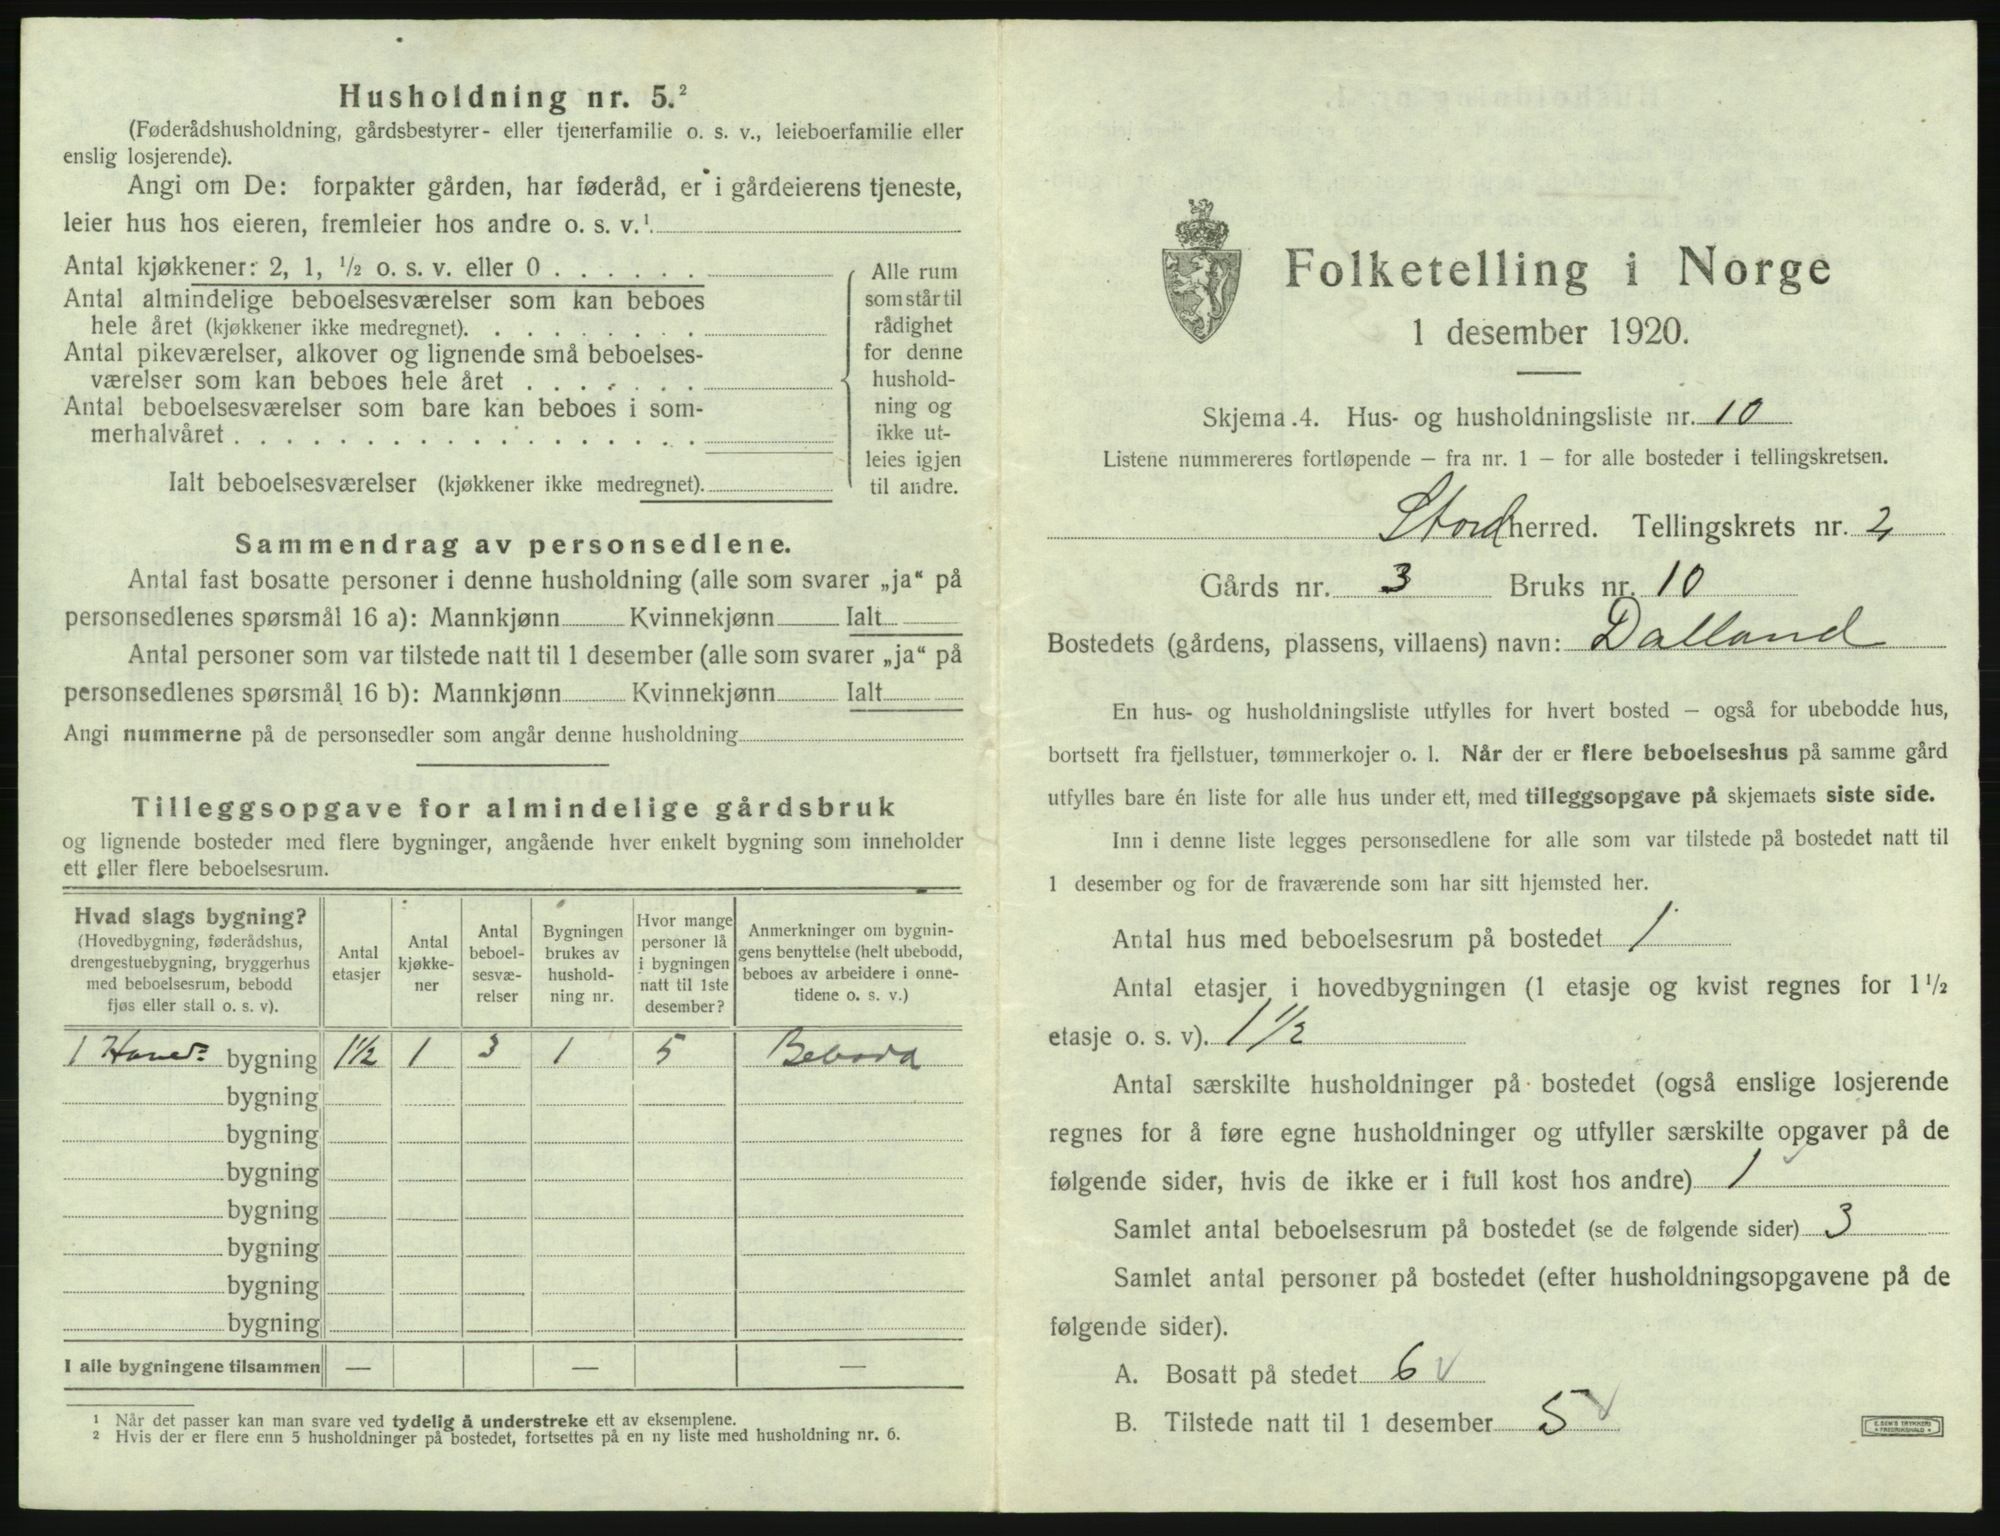 Husholdning nr. 5.²
(Føderådshusholdning, gårdsbestyrer- eller tjenerfamilie o. s. v., leieboerfamilie eller
enslig losjerende).
Angi om De: forpakter gården, har føderåd, er i gårdeierens tjeneste,
leier hus hos eieren, fremleier hos andre o. s. v.¹
Antal kjøkkener: 2, 1, ½ o. s. v. eller 0 . . . . . .
Antal almindelige beboelsesværelser som kan beboes
hele året (kjøkkener ikke medregnet). . . . . . . . .
Antal pikeværelser, alkover og lignende små beboelses-
værelser som kan beboes hele året . . . . . . .
Antal beboelsesværelser som bare kan beboes i som-
merhalvåret . . . . . . . . . . . . . . . . . .
Ialt beboelsesværelser (kjøkkener ikke medregnet).
Alle rum
som står til
rådighet
for denne
hushold-
ning og
ikke ut-
leies igjen
til andre.
Sammendrag av personsedlene.
Antal fast bosatte personer i denne husholdning (alle som svarer „ja“ på
personsedlenes spørsmål 16 a): Mannkjønn Kvinnekjønn Ialt
Antal personer som var tilstede natt til 1 desember (alle som svarer „ja“ på
personsedlenes spørsmål 16 b): Mannkjønn Kvinnekjønn Ialt
Angi nummerne på de personsedler som angår denne husholdning
Tilleggsopgave for almindelige gårdsbruk
og lignende bosteder med flere bygninger, angående hver enkelt bygning som inneholder
ett eller flere beboelsesrum.
Hvad slags bygning?
(Hovedbygning, føderådshus,
drengestuebygning, bryggerhus
med beboelsesrum, bebodd
fjøs eller stall o. s. v).
Antal
etasjer
Antal
kjøkke-
ner
Antal
beboel-
sesvæ-
relser
Bygningen
brukes av
hushold-
ning nr.
Hvor mange
personer lå
i bygningen
natt til 1ste
desember?
Anmerkninger om bygnin-
gens benyttelse (helt ubebodd,
beboes av arbeidere i onne-
tidene o. s. v.)
1 Hoved bygning 1½ 1 3 1 5 Bebodd
bygning
bygning
bygning
bygning
bygning
bygning
bygning
I alle bygningene tilsammen — — —
¹ Når det passer kan man svare ved tydelig å understreke ett av eksemplene.
² Hvis der er flere enn 5 husholdninger på bostedet, fortsettes på en ny liste med husholdning nr. 6.
Folketelling i Norge
1 desember 1920.
Skjema 4. Hus- og husholdningsliste nr. 10
Listene nummereres fortløpende – fra nr. 1 – for alle bosteder i tellingskretsen.
Stord herred. Tellingskrets nr. 2
Gårds nr. 3 Bruks nr. 10
Bostedets (gårdens, plassens, villaens) navn: Dalland
En hus- og husholdningsliste utfylles for hvert bosted – også for ubebodde hus,
bortsett fra fjellstuer, tømmerkojer o. l. Når der er flere beboelseshus på samme gård
utfylles bare én liste for alle hus under ett, med tilleggsopgave på skjemaets siste side.
Inn i denne liste legges personsedlene for alle som var tilstede på bostedet natt til
1 desember og for de fraværende som har sitt hjemsted her.
Antal hus med beboelsesrum på bostedet 1
Antal etasjer i hovedbygningen (1 etasje og kvist regnes for 1½
etasje o. s. v). 1½
Antal særskilte husholdninger på bostedet (også enslige losjerende
regnes for å føre egne husholdninger og utfyller særskilte opgaver på de
følgende sider, hvis de ikke er i full kost hos andre) 1
Samlet antal beboelsesrum på bostedet (se de følgende sider) 3
Samlet antal personer på bostedet (efter husholdningsopgavene på de
følgende sider).
A. Bosatt på stedet 6
B. Tilstede natt til 1 desember 5
E. SEM'S TRYKKERI
FREDRIKSHALD